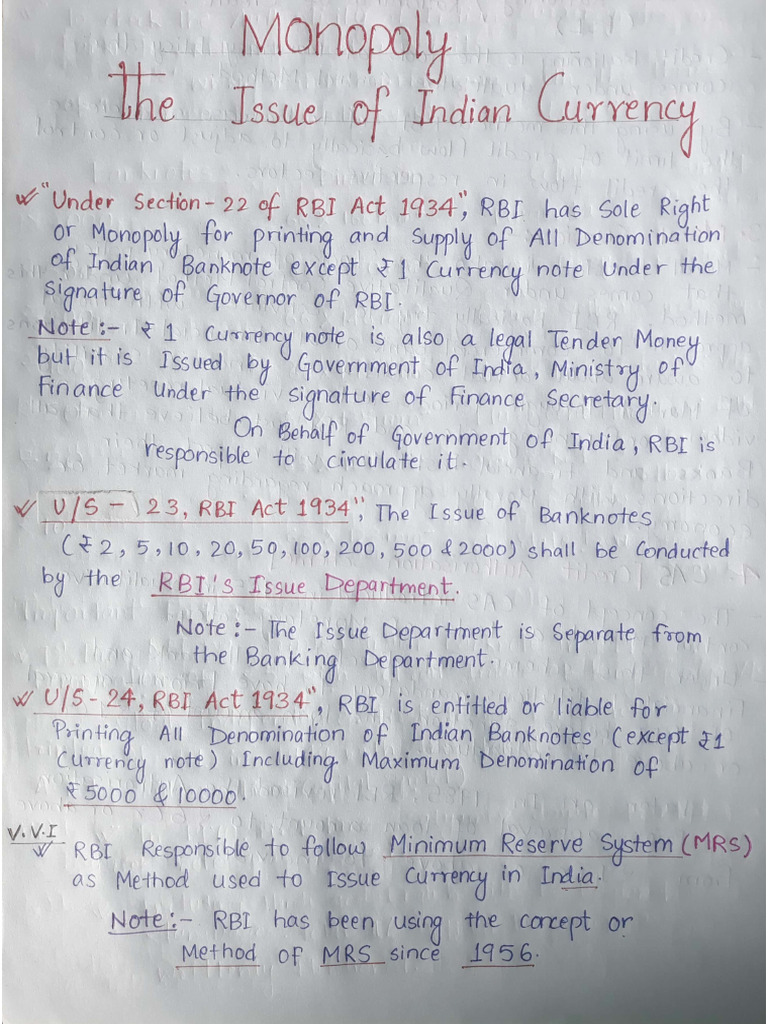 Monopoly
The Issue of Indian Currency
"Under Section-22 of RBI Act 1934", RBI has Sole Right
or Monopoly for printing and Supply of All Denomination
of Indian Banknote except ₹1 Currency note Under the
Signature of Governor of RBI.
Note:- ₹1 Currency note is also a legal Tender Money
but it is Issued by Government of India, Ministry of
Finance Under the signature of Finance Secretary.
On Behalf of Government of India, RBI is
responsible to circulate it.
U/S - 23, RBI Act 1934", The Issue of Banknotes
(₹2, 5, 10, 20, 50, 100, 200, 500 & 2000) shall be Conducted
by the RBI's Issue Department.
Note:- The Issue Department is Separate from
the Banking Department.
U/S-24, RBI Act 1934", RBI is entitled or liable for
Printing All Denomination of Indian Banknotes (except ₹1
Currency note) Including Maximum Denomination of
₹5000 & 10000.
V.V.I
RBI Responsible to follow Minimum Reserve System (MRS)
as Method used to Issue Currency in India.
Note:- RBI has been using the concept or
Method of MRS since 1956.